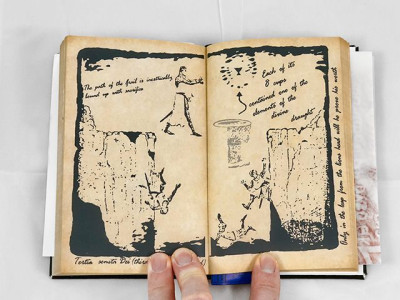 The path of the Grail is inextricably
bound up with sacrifice
Each of its
8 cups
contained one of the
elements of the
divine draught
Only in the leap from the lions head will he prove his worth
Tertia semita Dei (third